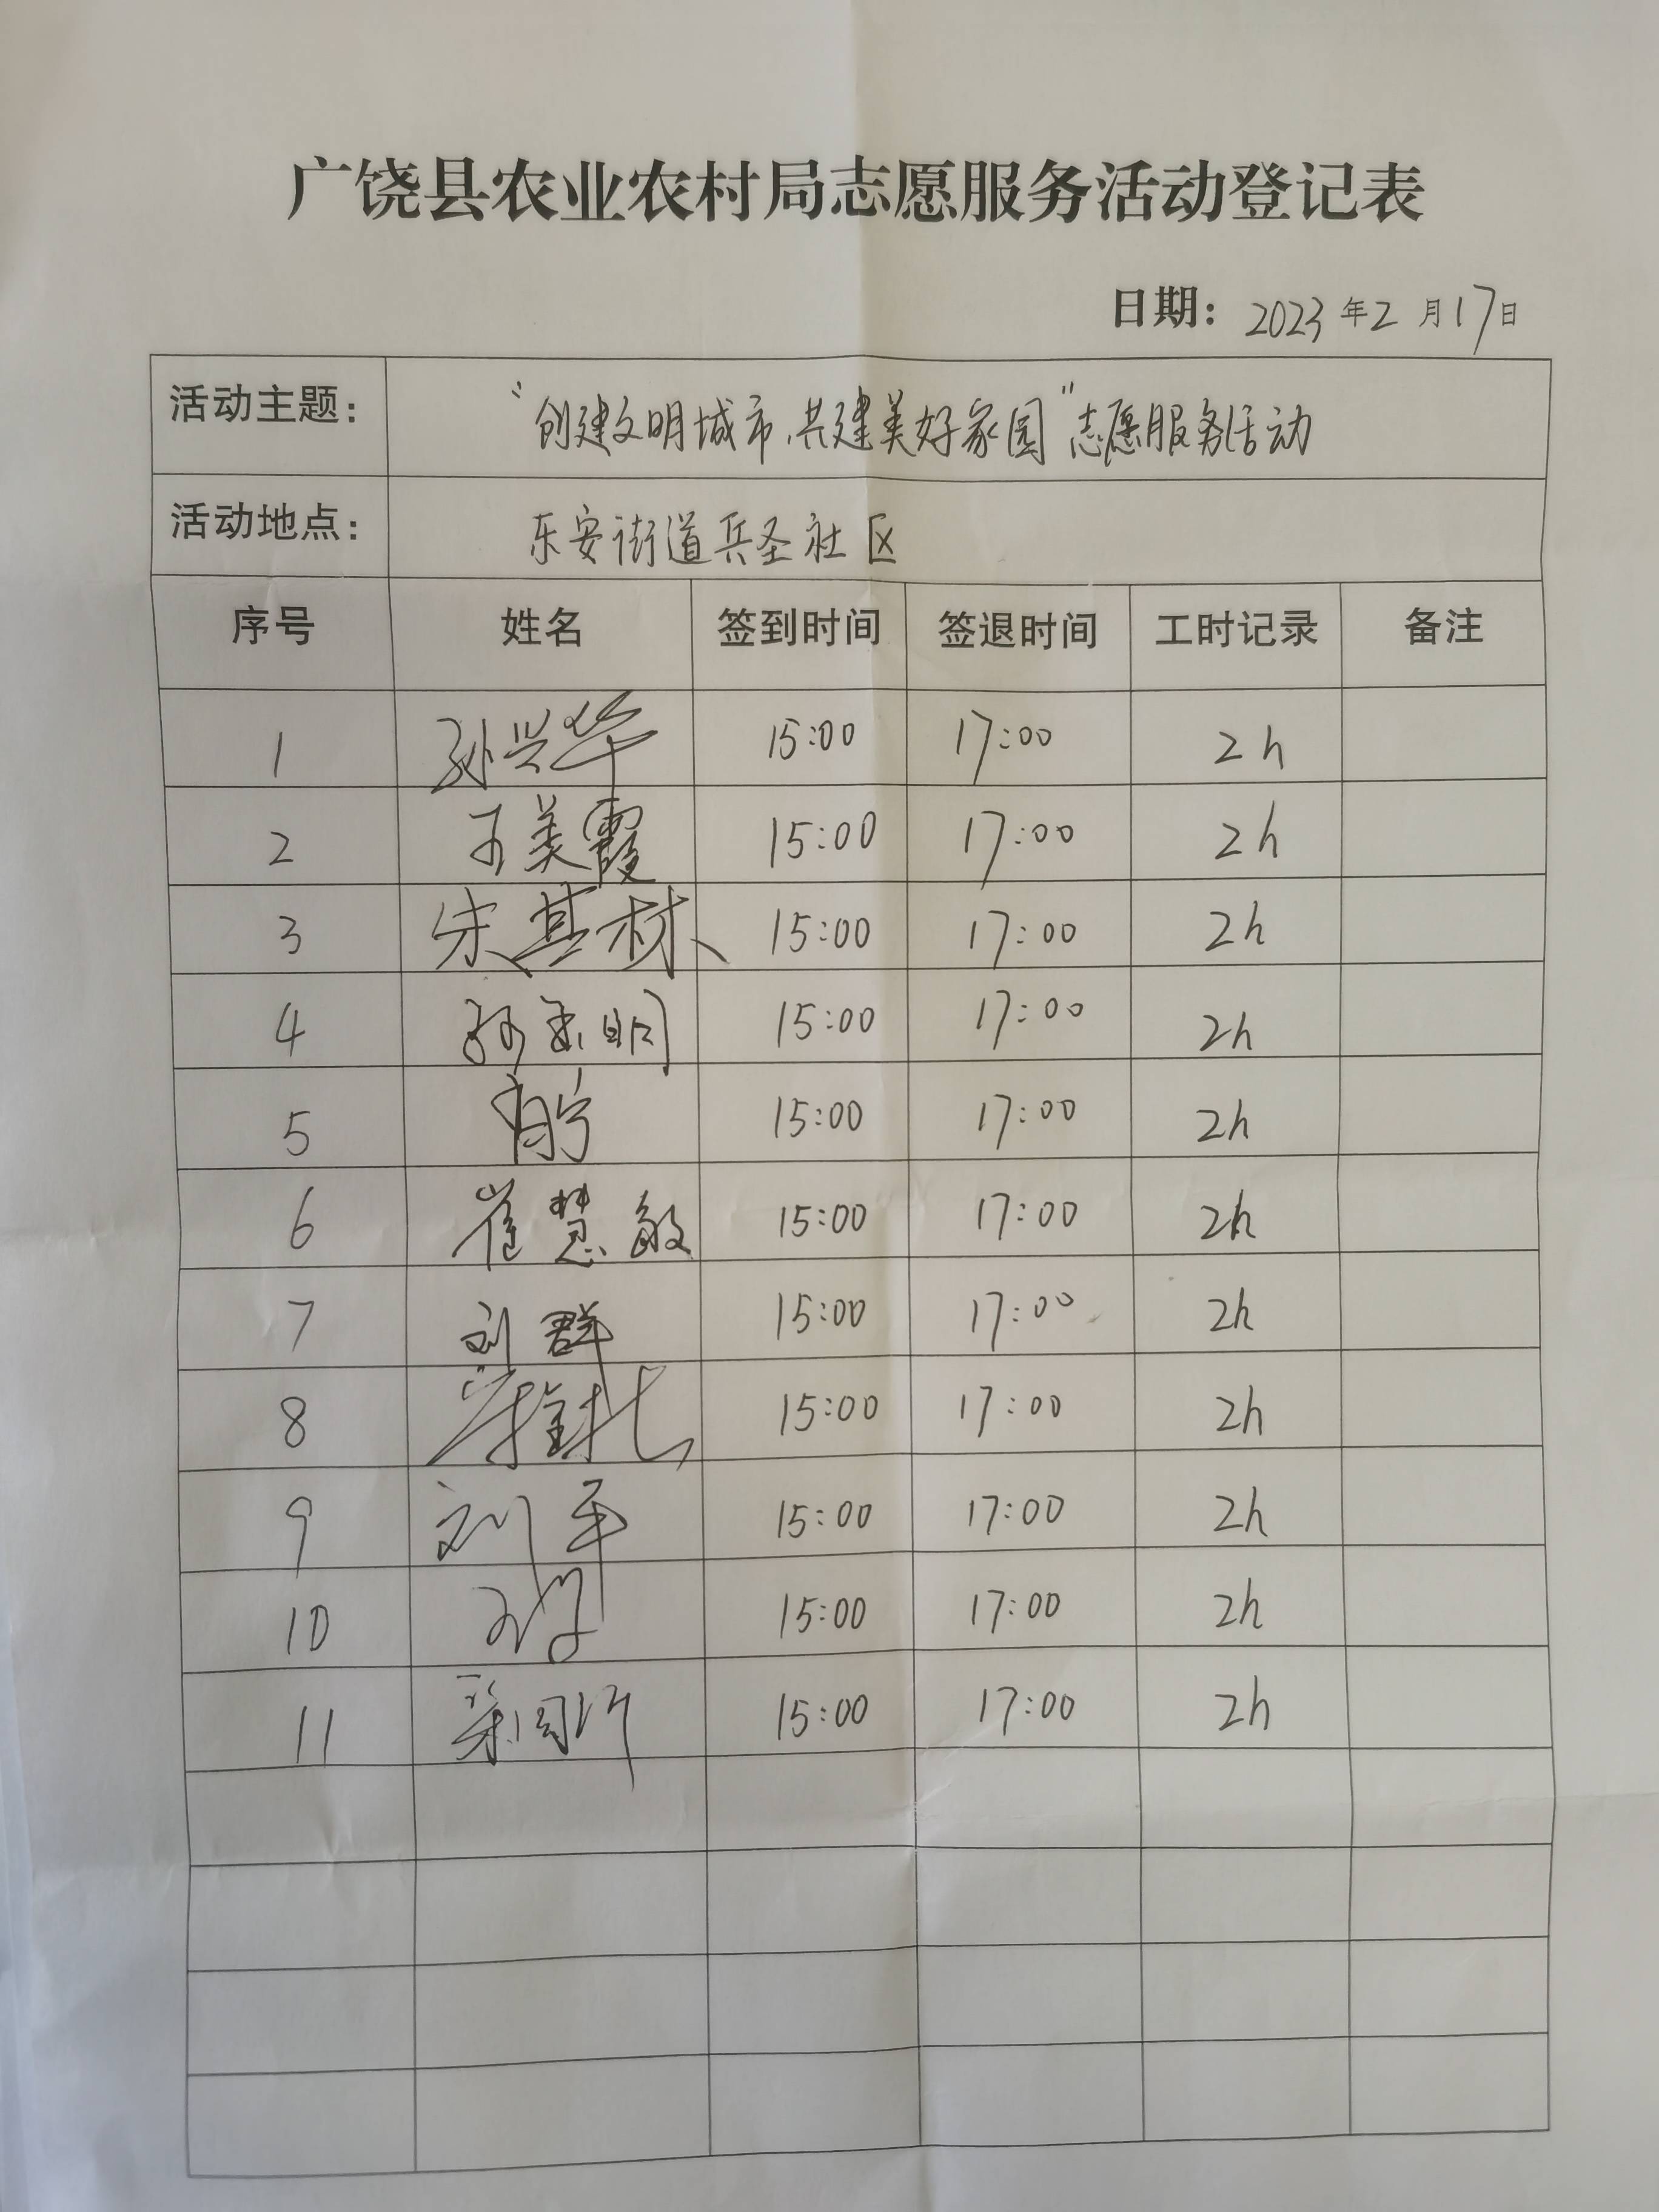 广饶县农业农村局志愿服务活动登记表
日期：2023年2月17日
活动主题： “创建文明城市、共建美好家园”志愿服务活动
活动地点： 东安街道兵圣社区
序号 姓名 签到时间 签退时间 工时记录 备注
1 孙兴华 15:00 17:00 2h
2 王美霞 15:00 17:00 2h
3 宋其林 15:00 17:00 2h
4 15:00 17:00 2h
5 15:00 17:00 2h
6 崔慧敏 15:00 17:00 2h
7 刘群 15:00 17:00 2h
8 15:00 17:00 2h
9 刘平 15:00 17:00 2h
10 15:00 17:00 2h
11 15:00 17:00 2h